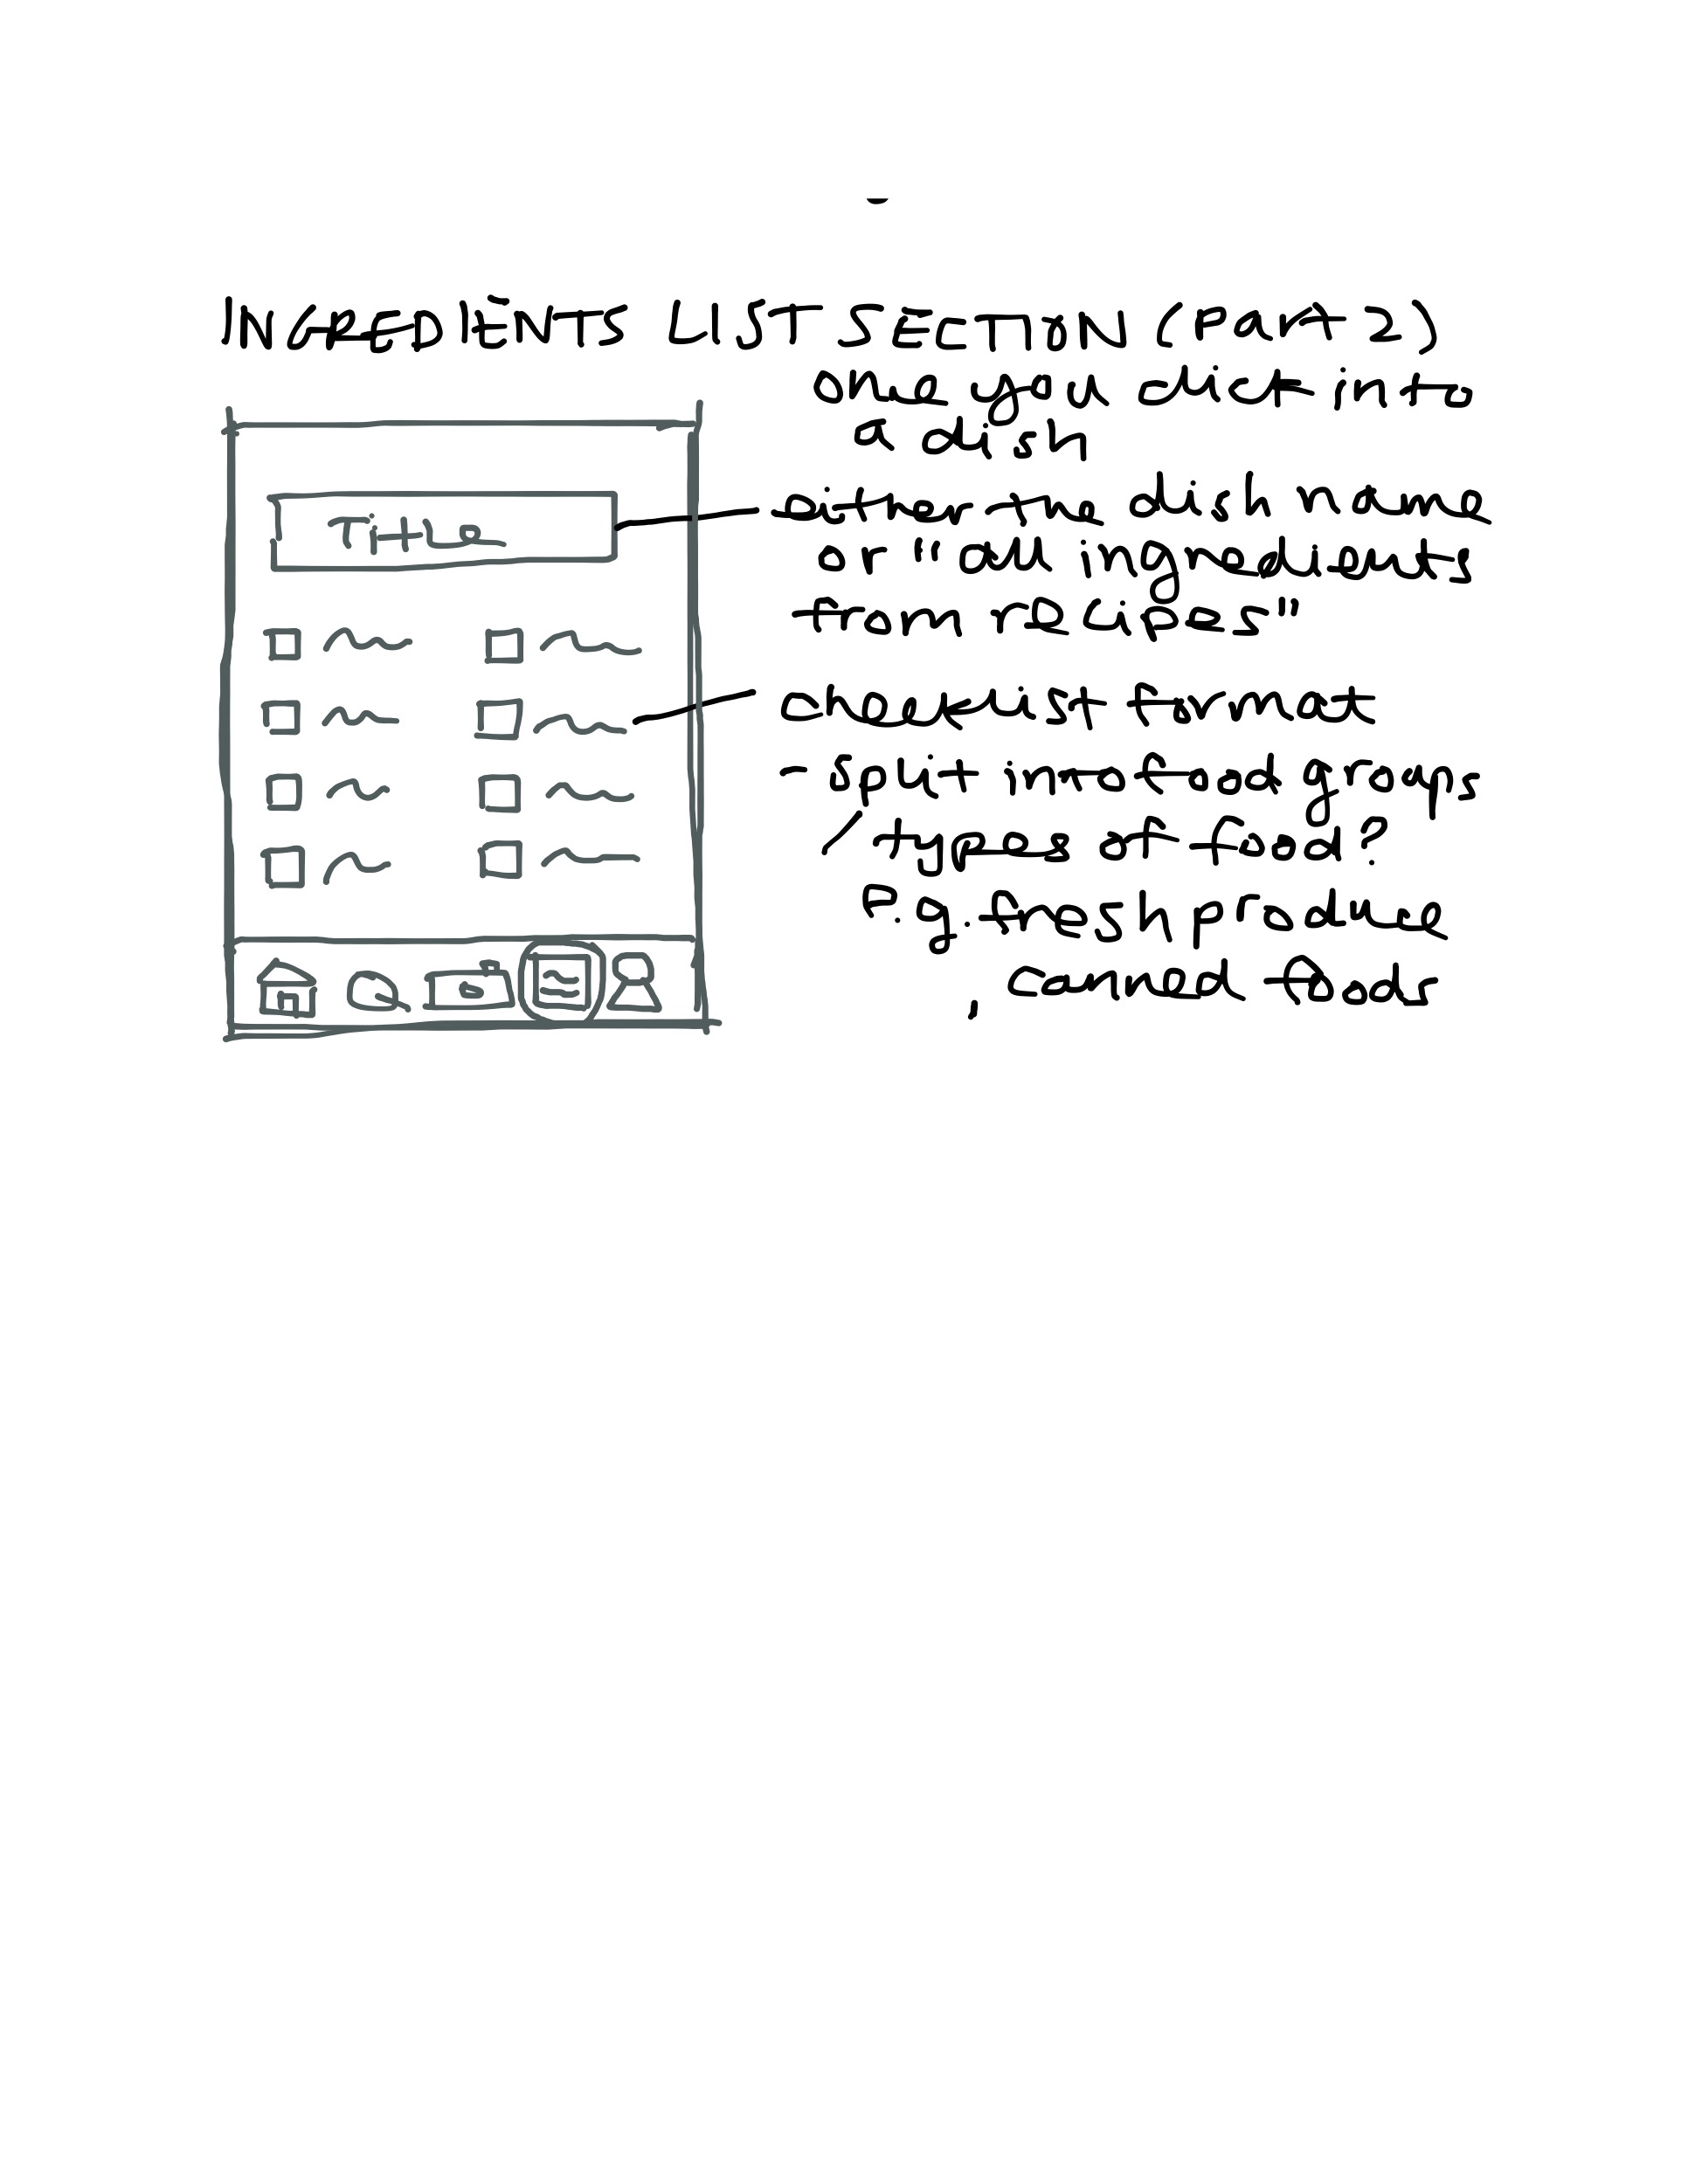 INGREDIENTS LIST SECTION (Part 2)
once you click into
a dish
Title
either the dish name
or "all ingredients
from recipes"
checklist format
- split into food groups
/ types of food?
e.g. fresh produce
, canned foods